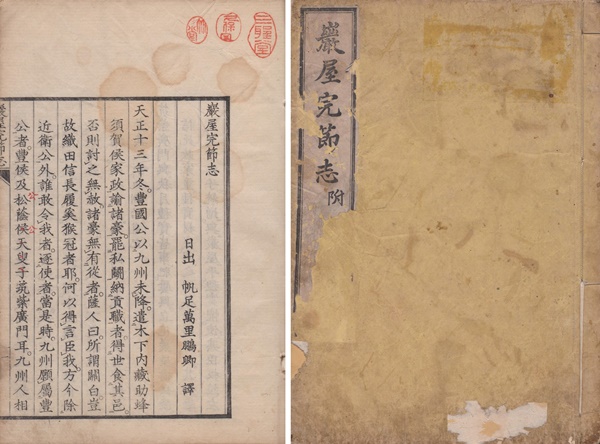 巖屋完節志 附
巖屋完節志
日出 帆足萬里鵬卿 譯
天正十三年冬。豐國公以九州未降。遣木下内藏助蜂
須賀侯家政諭諸豪。罷私鬪納貢職者。得世食其邑。
否則討之無赦。諸豪無有從者。薩人曰。所謂關白。豈
故織田信長履奚猴冠者耶。何以得言臣我。方今除
近衛公外。誰敢令我者。逐使者。當是時。九州願屬豐
公者。豐侯及松蔭侯天叟子筑紫廣門耳。九州人相
巖屋完節志